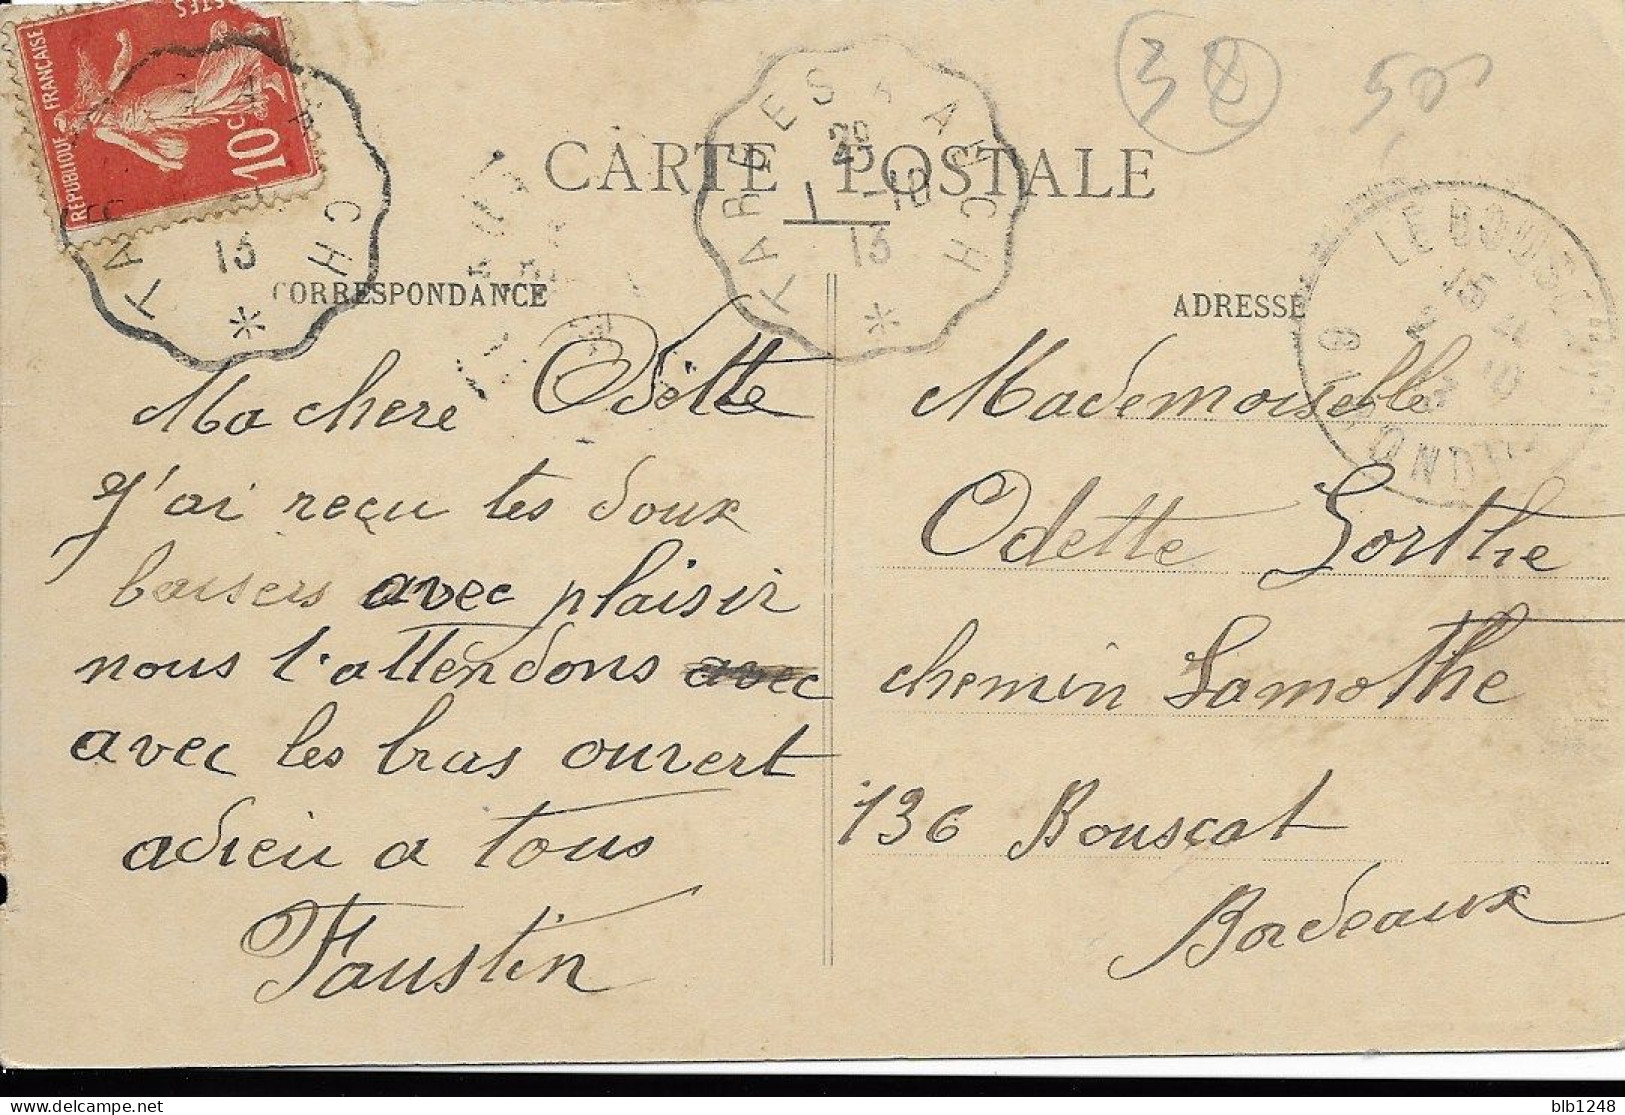 POSTES
REPUBLIQUE FRANÇAISE
10 C
TA
CH
13
*
TARBES A AUCH
1
-10
13
*
38
50
CARTE POSTALE
CORRESPONDANCE
ADRESSE
LE BOUSCAT
15
GIRONDE
Ma chere Odette
J'ai reçu tes doux
baisers avec plaisir
nous t'attendons avec
avec les bras ouvert
adieu a tous
Faustin
Mademoiselle
Odette Lorthe
chemin Lamothe
136 Bousçat
Bordeaux
blb1248